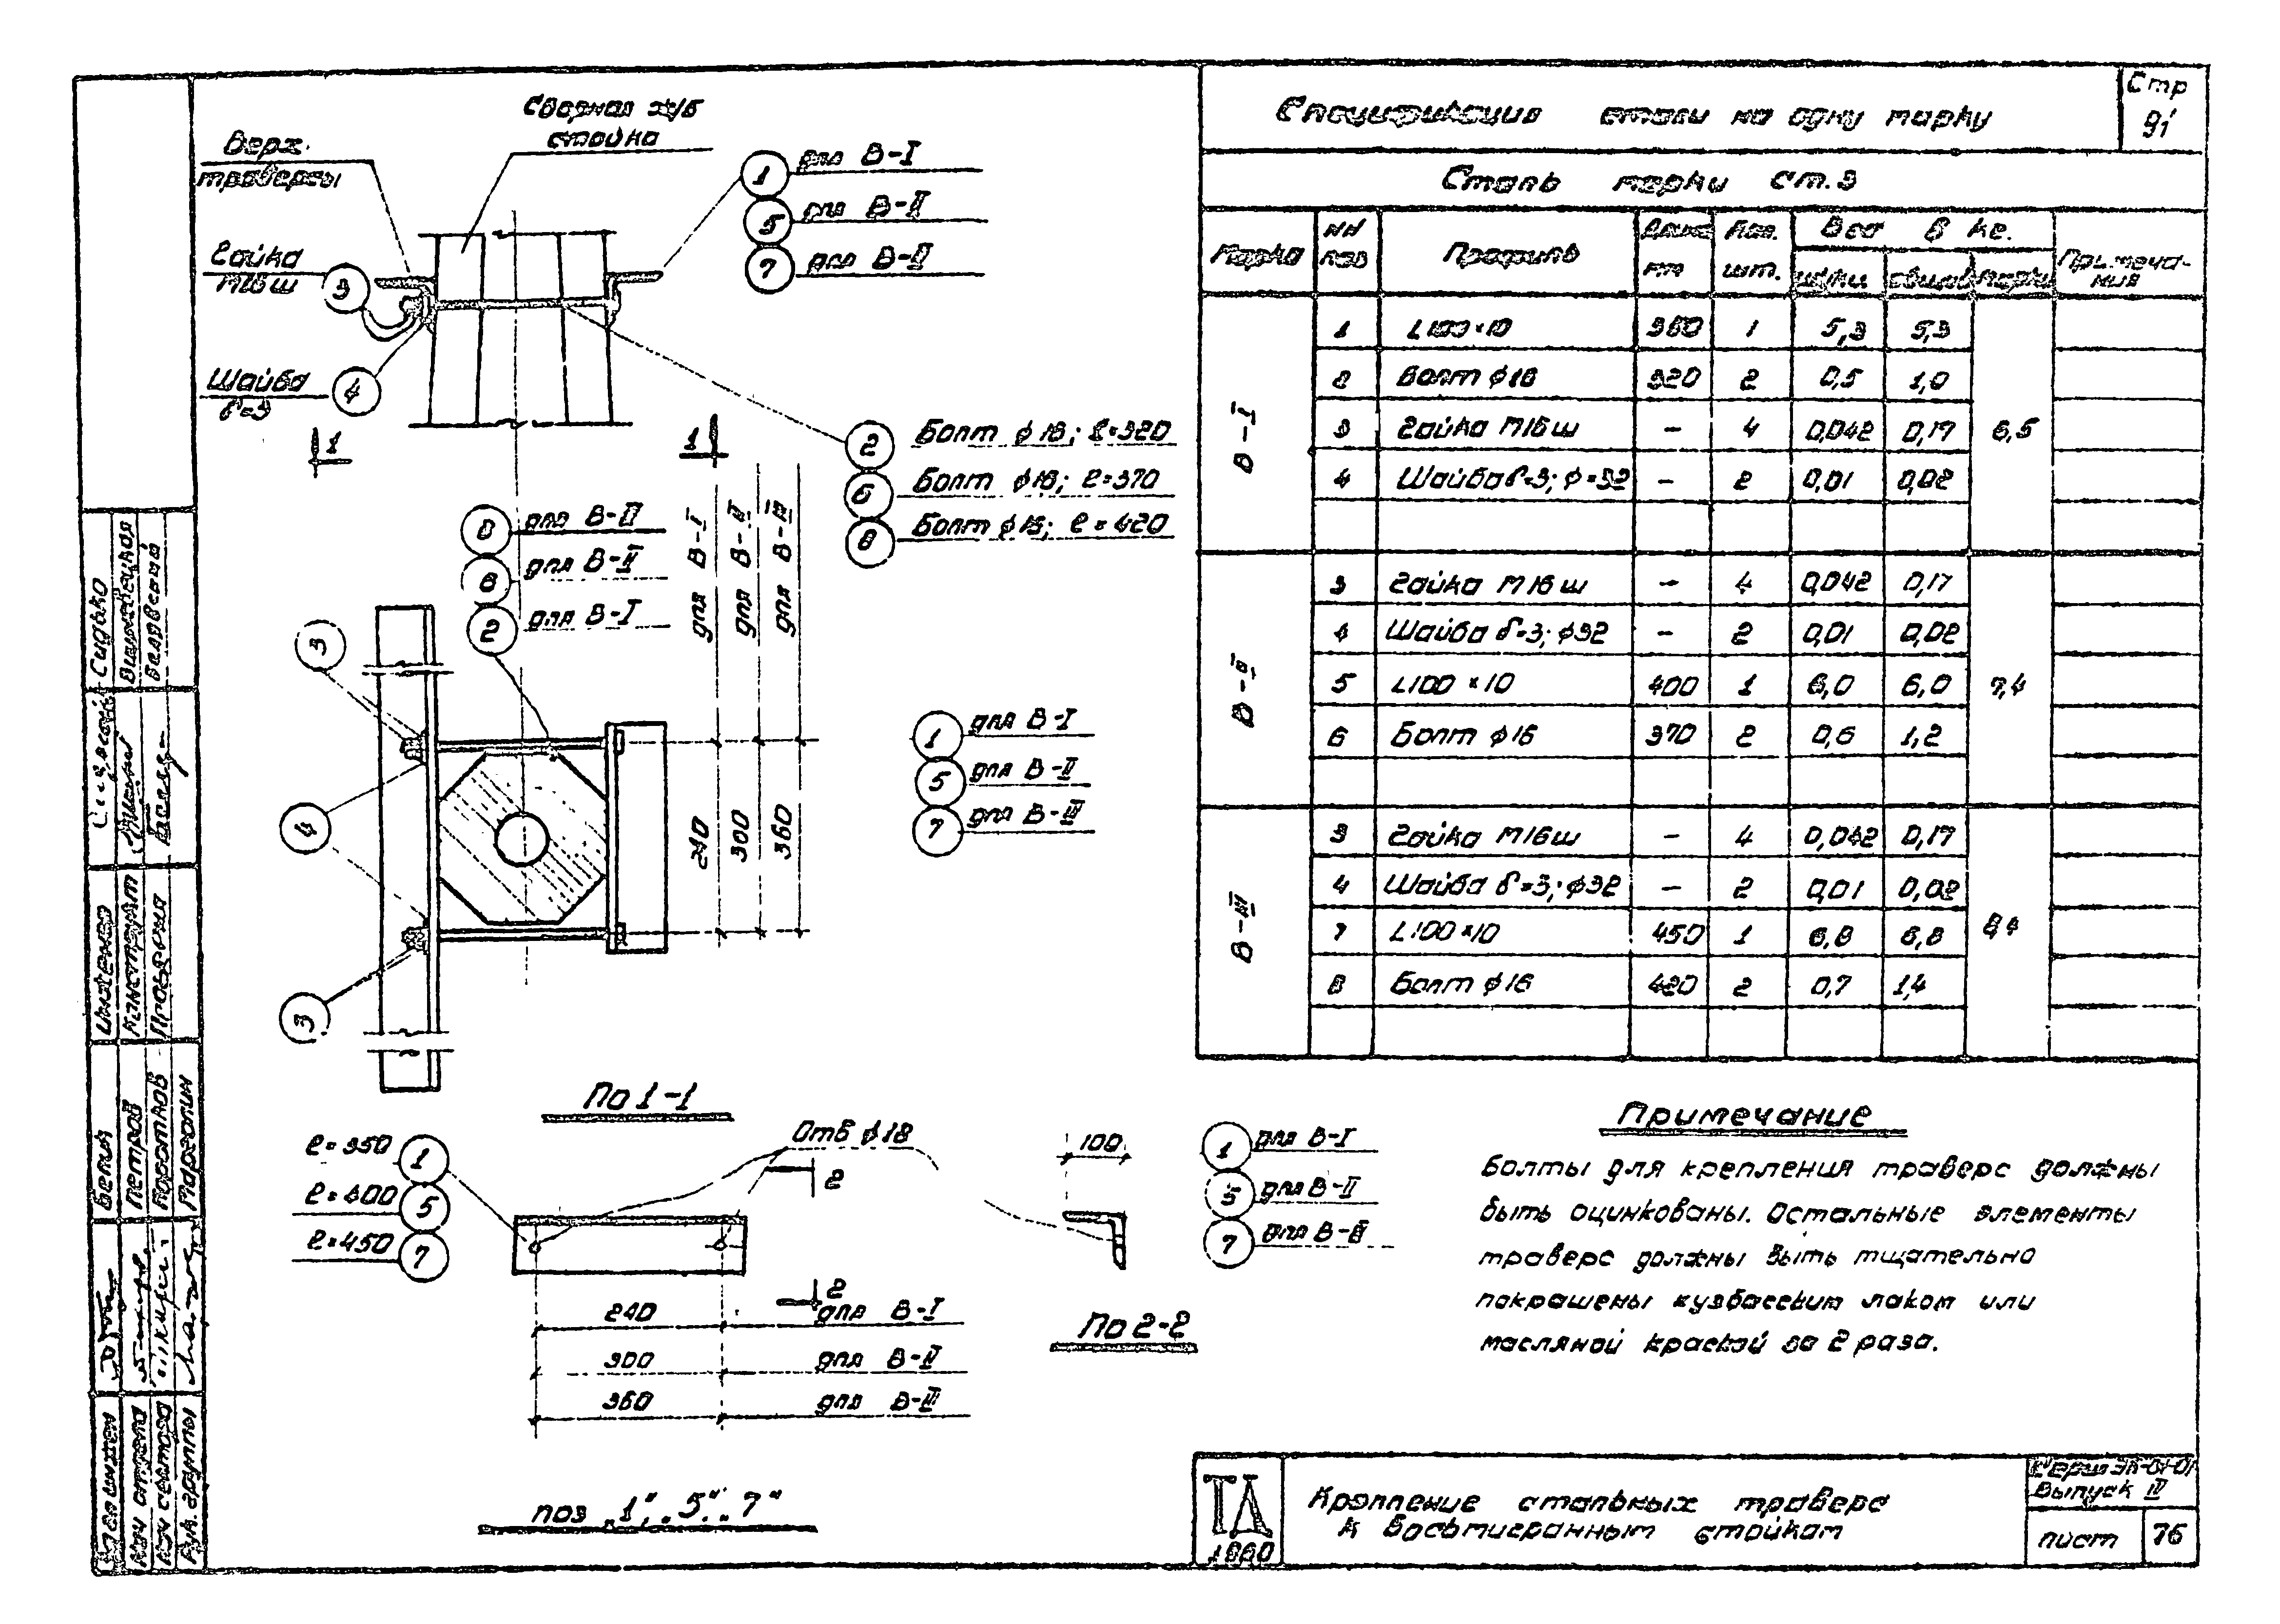 Сборная ж/б
стойка
Верх.
траверсы
Гайка
М16ш
3
Шайба
δ=3
4
1 для В-I
5 для В-II
7 для В-III
1 1
2 Болт φ16; ℓ=320
6 Болт φ16; ℓ=370
8 Болт φ16; ℓ=420
8 для В-III
6 для В-II
2 для В-I
для В-I
для В-II
для В-III
3
4
3
240
300
360
1 для В-I
5 для В-II
7 для В-III
По 1-1
ℓ=350 1
ℓ=400 5
ℓ=450 7
Отв φ18
2
2
240 для В-I
300 для В-II
360 для В-III
поз „1", „5", „7"
100
1 для В-I
5 для В-II
7 для В-III
По 2-2
Спецификация стали на одну марку
Стр
91
Сталь марки ст.3
Марка
NN
поз
Профиль
Длина
мм
Кол.
шт.
Вес в кг.
штуки
марки
Примеча-
ния
В-I
1 L100×10 350 1 5,3 5,3
2 Болт φ16 320 2 0,5 1,0
3 Гайка М16ш – 4 0,042 0,17 6,5
4 Шайба δ=3; φ=32 – 2 0,01 0,02
В-II
3 Гайка М16ш – 4 0,042 0,17
4 Шайба δ=3; φ32 – 2 0,01 0,02
5 L100×10 400 1 6,0 6,0 7,4
6 Болт φ16 370 2 0,6 1,2
В-III
3 Гайка М16ш – 4 0,042 0,17
4 Шайба δ=3; φ32 – 2 0,01 0,02
7 L100×10 450 1 6,8 6,8 8,4
8 Болт φ16 420 2 0,7 1,4
Примечание
Болты для крепления траверс должны
быть оцинкованы. Остальные элементы
траверс должны быть тщательно
покрашены кузбасским лаком или
масляной краской за 2 раза.
ТД
1960
Крепление стальных траверс
к восьмигранным стойкам
Серия ЭК-01-01
Выпуск IV
лист 76
Сидько
Инженер
Конструкт
Проверил
Белий
Петров
Коротков
Марголин
Нач отдела
Нач сектора
Рук. группы